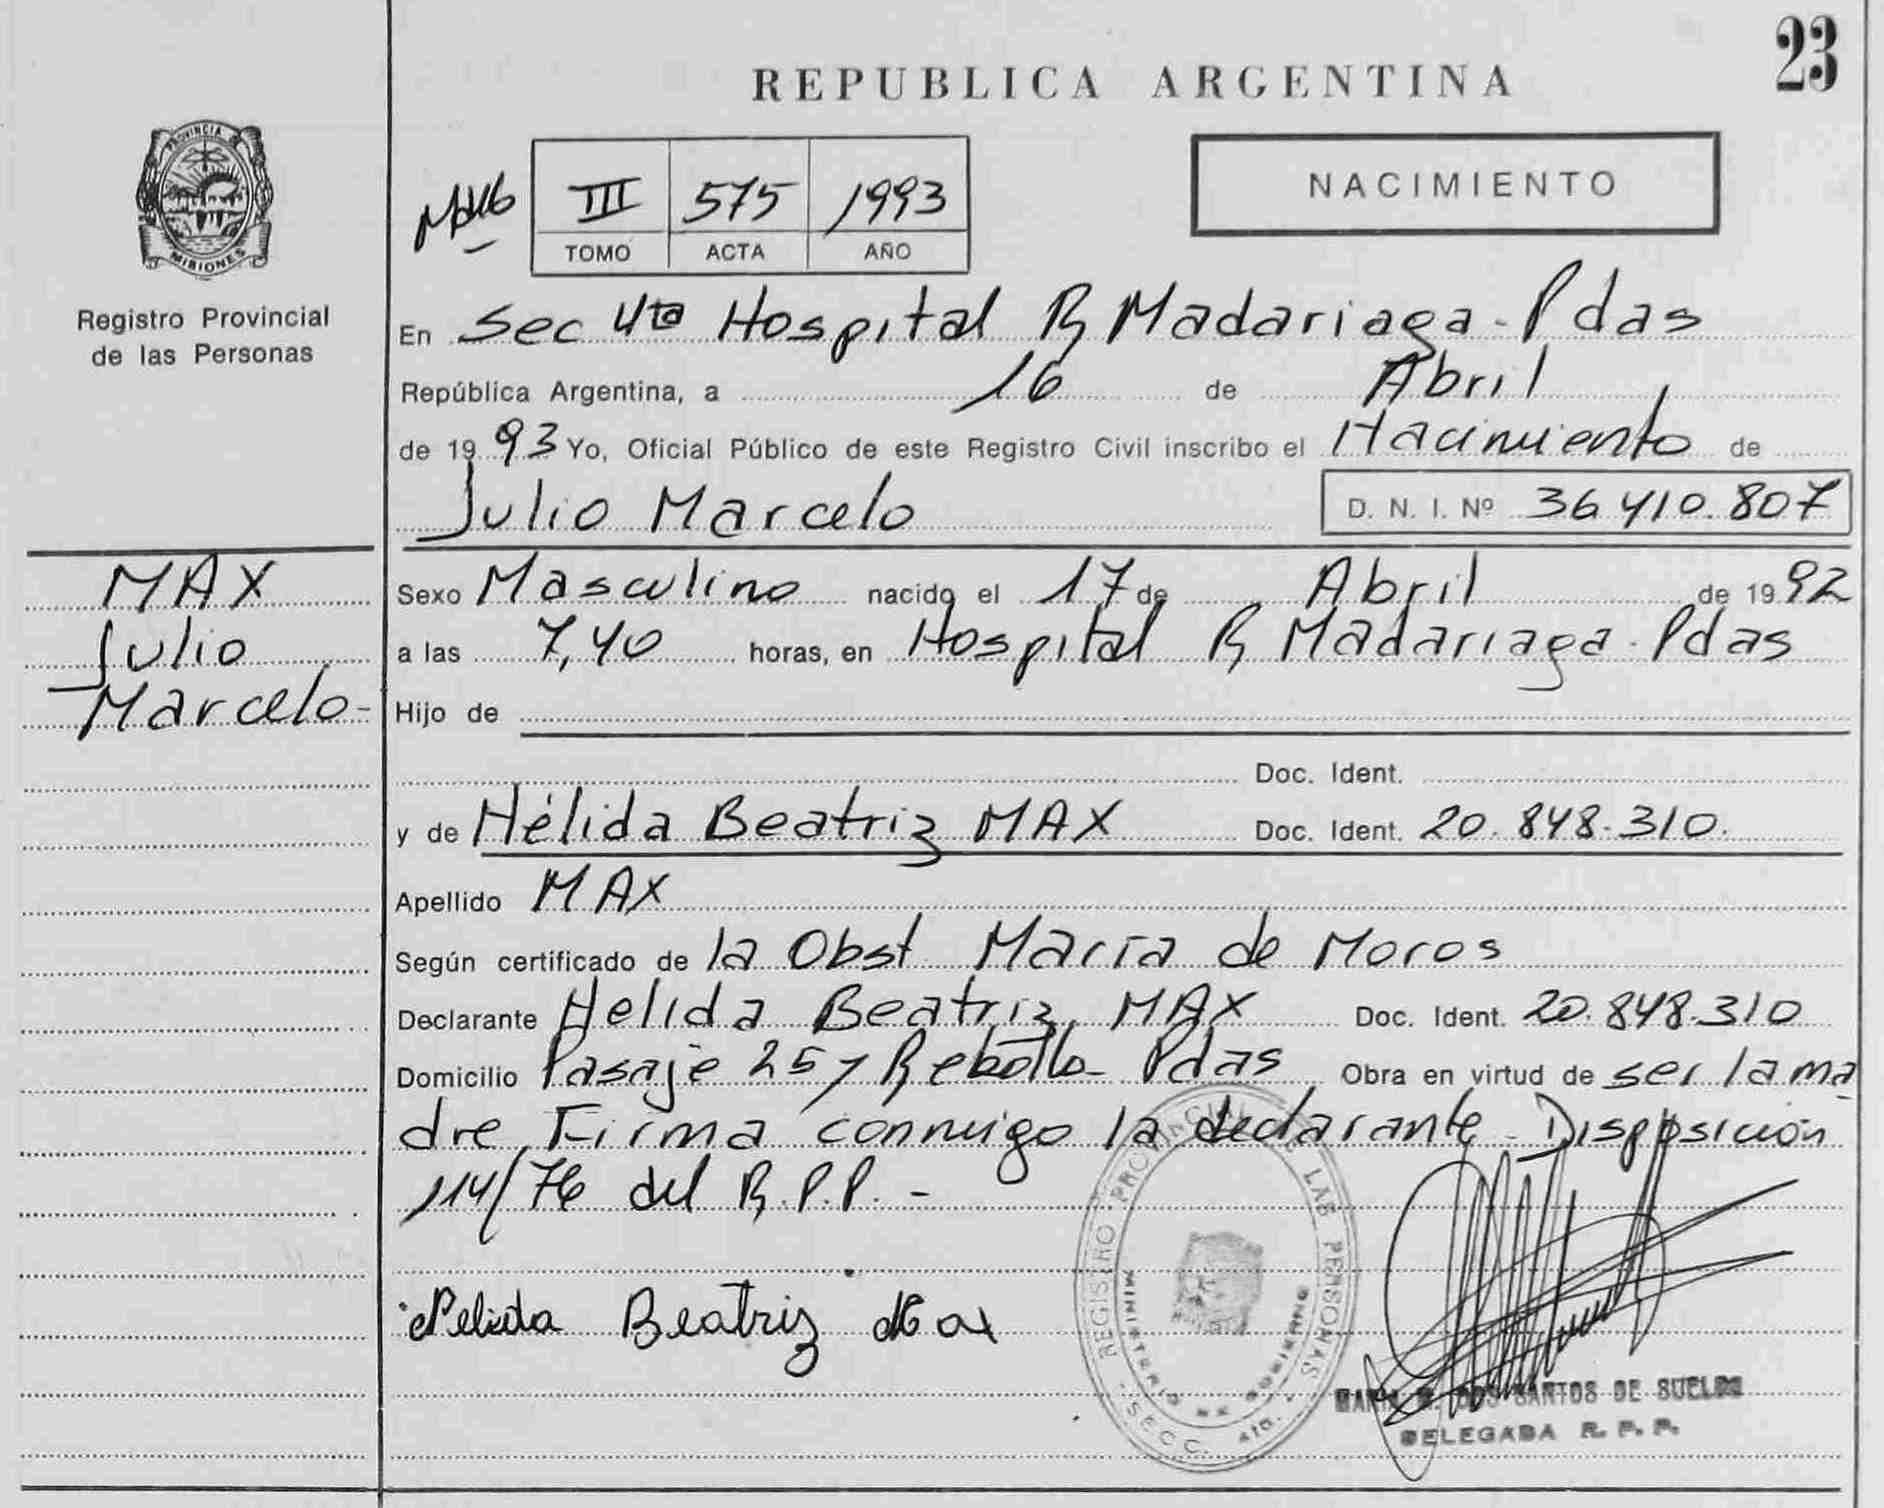 23
REPUBLICA ARGENTINA
PROVINCIA DE
MISIONES
Registro Provincial
de las Personas
NACIMIENTO
III 575 1993
TOMO ACTA AÑO
En Sec 4ta Hospital R Madariaga - Pdas
República Argentina, a 16 de Abril
de 1993 Yo, Oficial Público de este Registro Civil inscribo el Nacimiento de
Julio Marcelo D. N. I. Nº 36.410.807
MAX
Julio
Marcelo-
Sexo Masculino nacido el 17 de Abril de 1992
a las 7,40 horas, en Hospital R Madariaga - Pdas
Hijo de
Doc. Ident.
y de Hélida Beatriz MAX Doc. Ident. 20.848.310.
Apellido MAX
Según certificado de la Obst María de Moros
Declarante Helida Beatriz MAX Doc. Ident. 20.848.310
Domicilio Pasaje 25 y Rebollo - Pdas Obra en virtud de ser la ma
dre, Firma conmigo la declarante - Disposición
114/76 del R.P.P. -
Helida Beatriz Max
REGISTRO PROVINCIAL DE LAS PERSONAS
MINISTERIO DE GOBIERNO
SECC. 4ta.
MARIA DOS SANTOS DE SUELDO
DELEGADA R. P. P.